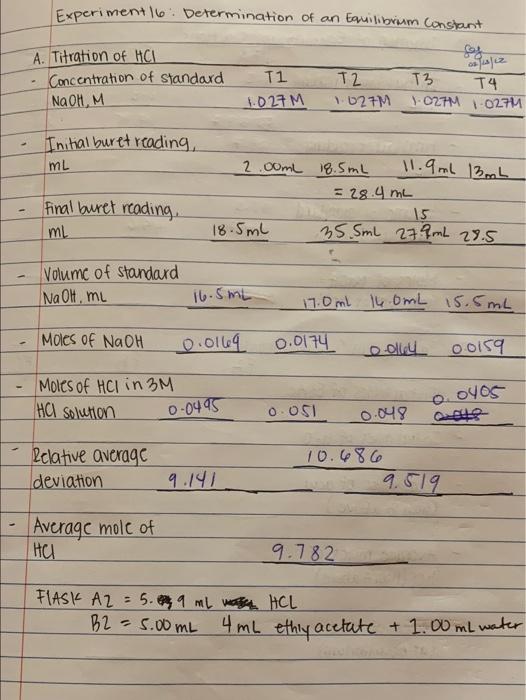 Experiment 16: Determination of an Equilibrium Constant
A. Titration of HCl
- Concentration of standard T1 T2 T3 T4
NaOH, M 1.027M 1.027M 1.027M 1.027M
- Initial buret reading,
mL 2.00mL 18.5mL 11.9mL 13mL
= 28.4 mL
- Final buret reading, 15
mL 18.5mL 35.5mL 27.9mL 28.5
- Volume of standard
NaOH, mL 16.5mL 17.0ml 16.0mL 15.5mL
- Moles of NaOH 0.0169 0.0174 0.0164 0.0159
- Moles of HCl in 3M 0.0405
HCl solution 0.0495 0.051 0.048
- Relative average 10.686
deviation 9.141 9.519
- Average mole of
HCl 9.782
FlASK A2 = 5. 9 mL HCL
B2 = 5.00mL 4mL ethly acetate + 1.00mL water